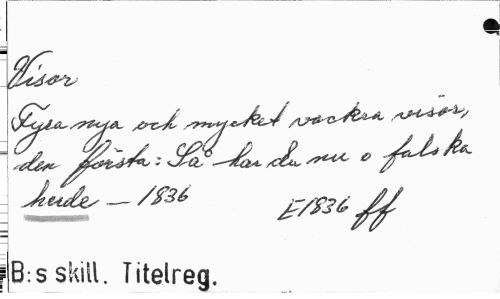 Visor
Fyra nya och mycket vackra visor,
den första: Så har du nu o falska
herde - 1836
E1836 ff
B:s skill. Titelreg.